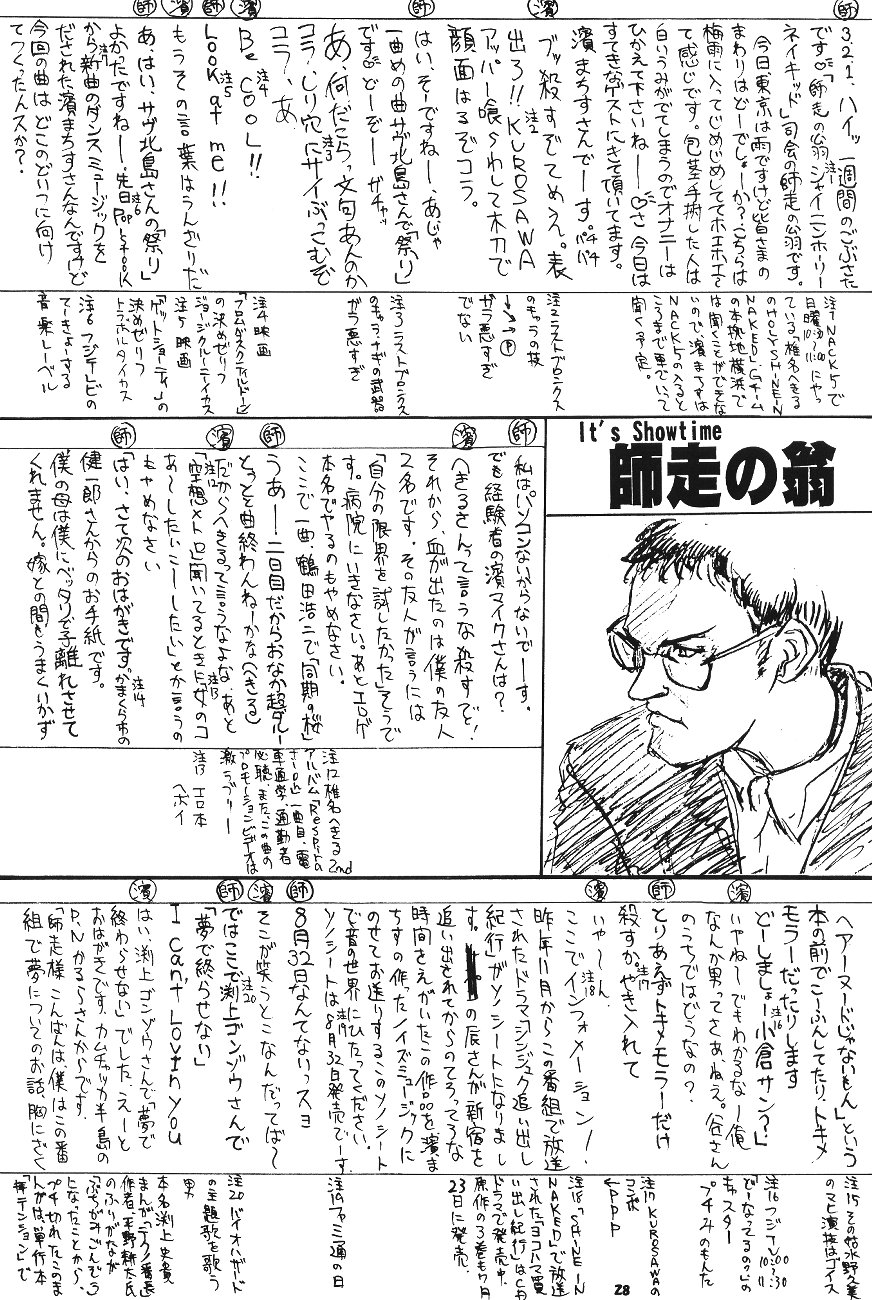 師
3.2.1、ハイッ 一週間のごぶさた
です♡「師走の翁 シャイニンホーリー
ネイキッド」司会の師走の翁です。
今日東京は雨ですけど皆さまの
まわりはどーでしょーか?こちらは
梅雨に入ってじめじめしててホエホエ~
て感じです。包茎手術した人は
白いうみがでてしまうのでオナニーは
ひかえて下さいねー♡さ 今日は
すてきなゲストにきて頂いてます。
濱まちすさんでーす。パチパチ
濱
ブッ殺すぞてめえ。表
出ろ!!KUROSAWA
アッパー喰らわして木刀で
顔面はるぞコラ。
師
はい、そーですねー、あじゃ
一曲めの曲サヴ北島さんで「祭り」
です♡どーぞー ガチャッ
濱
あ、何だこらっ文句あんのか
コラ、しり穴にサイぶっこむぞ
コラ、あ
Be COOL!!
師
Look at me!!
濱
もうその言葉はうんざりだ
師
あ、はい、サヴ北島さんの「祭り」
よかったですねー、先日Pop stock
から新曲のダンスミュージックを
だされた濱まちすさんなんですけど
今回の曲はどこのどいつに向け
てつくったんスか?
注1 NACK5で
日曜10:30~11:00にやっ
ている、椎名へきる
のHOLY SHINE IN
NAKED、Gチーム
の本拠地横浜で
は聞くことができな
いので、濱まちすは
NACK5の入ると
ころまで車でいって
聞く予定。
注2 ラストブロンクス
のキャラの技
↓↘→Ⓟ
ガラ悪すぎ
でない
注3 ラストブロンクス
のキャラナギの武器
ガラ悪すぎ
注4 映画
「フロムダスクティルドーン」
の決めゼリフ
ジョージクルーニーイカス
注5 映画
「ゲットショーティ」の
決めゼリフ
トラボルタイカス
注6 フジテレビの
てーきょーする
音楽レーベル
It's Showtime
師走の翁
師
私はパソコンないからないでーす。
でも経験者の濱マイクさんは?
濱
へきるさんって言うな殺すぞ!
それから、血が出たのは僕の友人
2名です。その友人が言うには
「自分の限界を試したかった」そうで
す。病院にいきなさい。あとエロゲ
本名でやるのもやめなさい。
師
ここで一曲、鶴田浩二で「同期の桜」
うあー!二日目だからおなか超ダルー
とっとと曲終わんねーかな(へきる)
濱
だからへきるって言うなよな、あと
「空想メトロ」聞いてるときに女のコ
あ~したいこーしたい」とか言うの
もやめなさい
師
「はい、さて次のおはがきです。かまくら市の
健一郎さんからのお手紙です。
僕の母は僕にベッタリで子離れさせて
くれません。嫁との間もうまくいかず
注12 椎名へきる2nd
アルバム「Respirの
さーの」一曲目、電
車通学、通勤者
必聴、また、この曲の
プロモーションビデオは
激ラブリー
注13 エロ本
へボイ
ヘアーヌードじゃないもん」という
本の前でこーふんしてたり、トキメ
モラーだったりします
どーしましょー小倉サン?」
濱
いやねーでもわかるなー俺
なんか男ってさぁ、ねえ。谷さん
のうちではどうなの?
師
とりあえずトキメモラーだけ
殺すか。やき入れて
濱
いゃーん
ここでインフォメーション!
昨年11月からこの番組で放送
されたドラマ「シンジュク追い出し
紀行」がソノシートになりまし
す。の辰さんが新宿を
追い出されてからのてろってろな
時間をえがいたこの作品を濱ま
ちすの作ったノイズミュージックに
のせてお送りするこのソノシート
で音の世界にひたってください。
ソノシートは8月32日発売でーす。
師
8月32日なんてないっスョ
濱
そこが笑うとこなんだってば~
師
ではここで渕上ゴンゾウさんで
「夢で終らせない」
I can't Lovin you
濱
はい、渕上ゴンゾウさんで「夢で
終わらせない」でした、えーと
おはがきです、カムチャッカ半島の
P.Nかるらさんからです。
「師走様こんばんは僕はこの番
組で夢についてのお話、胸にざく
注15 その姑水野久美
のマヒ演技はゴイス
注16 フジテレ 10:00~11:30
「どーなってるの!?」の
キャスター
プチみのもんた
注17 KUROSAWAの
コンボ
←PPP
注18 "SHINE IN
NAKED"で放送
された「ヨコハマ買
い出し紀行」はCD
ドラマで発売中。
原作の3巻も7月
23日に発売。
注19 ファミ通の日
注20 バイオハザード
の主題歌を歌う
男
本名 渕上史貴
まんが「テクノ番長」
作者、平野耕太氏
のふりがなが
「ふちがみごんぞう」
となったことから、
プチ切れたこのま
んがは、単行本
「拝テンション」で
28